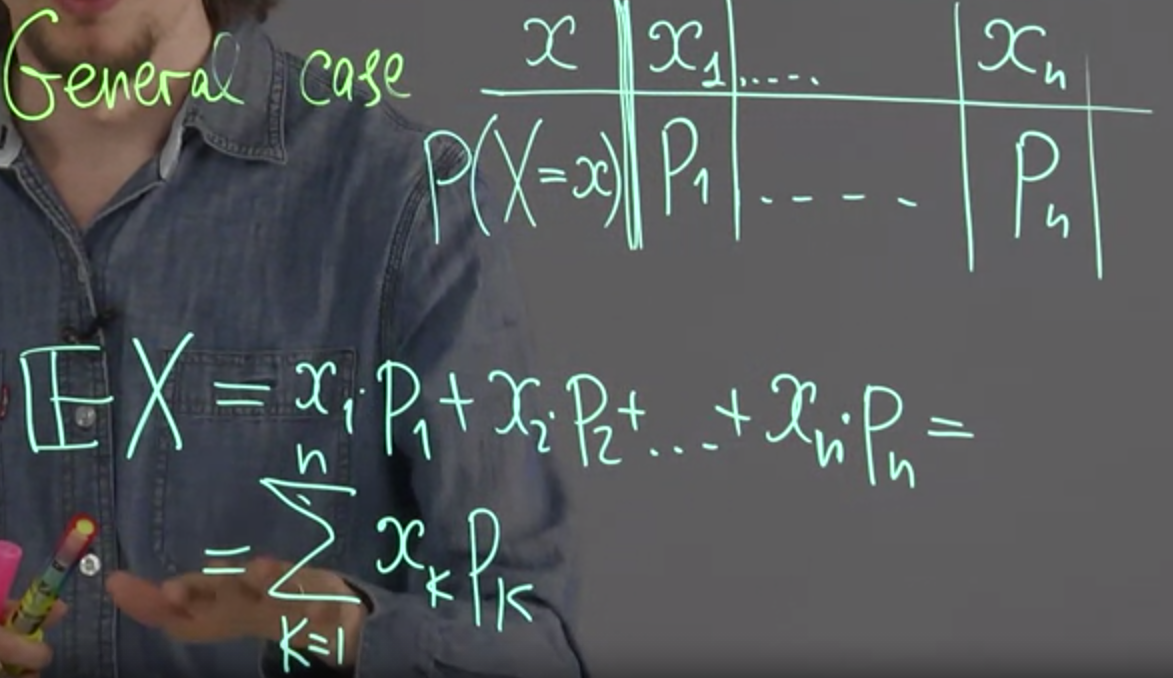 General case
x x₁ ..... xₙ
P(X=x) P₁ ..... Pₙ
𝔼X = x₁·p₁ + x₂·p₂ + ... + xₙ·pₙ =
= ∑ₖ₌₁ⁿ xₖ pₖ